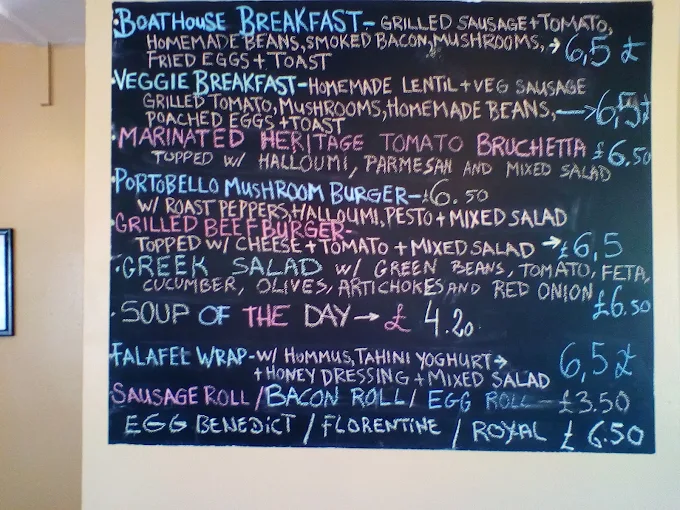 ·BOATHOUSE BREAKFAST- GRILLED SAUSAGE+TOMATO,
HOMEMADE BEANS, SMOKED BACON, MUSHROOMS, → 6,5 £
FRIED EGGS + TOAST
·VEGGIE BREAKFAST-HOMEMADE LENTIL + VEG SAUSAGE
GRILLED TOMATO, MUSHROOMS, HOMEMADE BEANS, → 6,5 £
POACHED EGGS + TOAST
·MARINATED HERITAGE TOMATO BRUCHETTA £6.50
TOPPED W/ HALLOUMI, PARMESAN AND MIXED SALAD
·PORTOBELLO MUSHROOM BURGER-£6.50
W/ ROAST PEPPERS, HALLOUMI, PESTO + MIXED SALAD
·GRILLED BEEF BURGER-
TOPPED W/ CHEESE + TOMATO + MIXED SALAD → £6,5
·GREEK SALAD W/ GREEN BEANS, TOMATO, FETA,
CUCUMBER, OLIVES, ARTICHOKES AND RED ONION £6.50
·SOUP OF THE DAY → £ 4.20.
·FALAFEL WRAP-W/ HUMMUS, TAHINI YOGHURT → 6,5 £
+ HONEY DRESSING + MIXED SALAD
SAUSAGE ROLL / BACON ROLL / EGG ROLL - £3.50
EGG BENEDICT / FLORENTINE / ROYAL £ 6.50